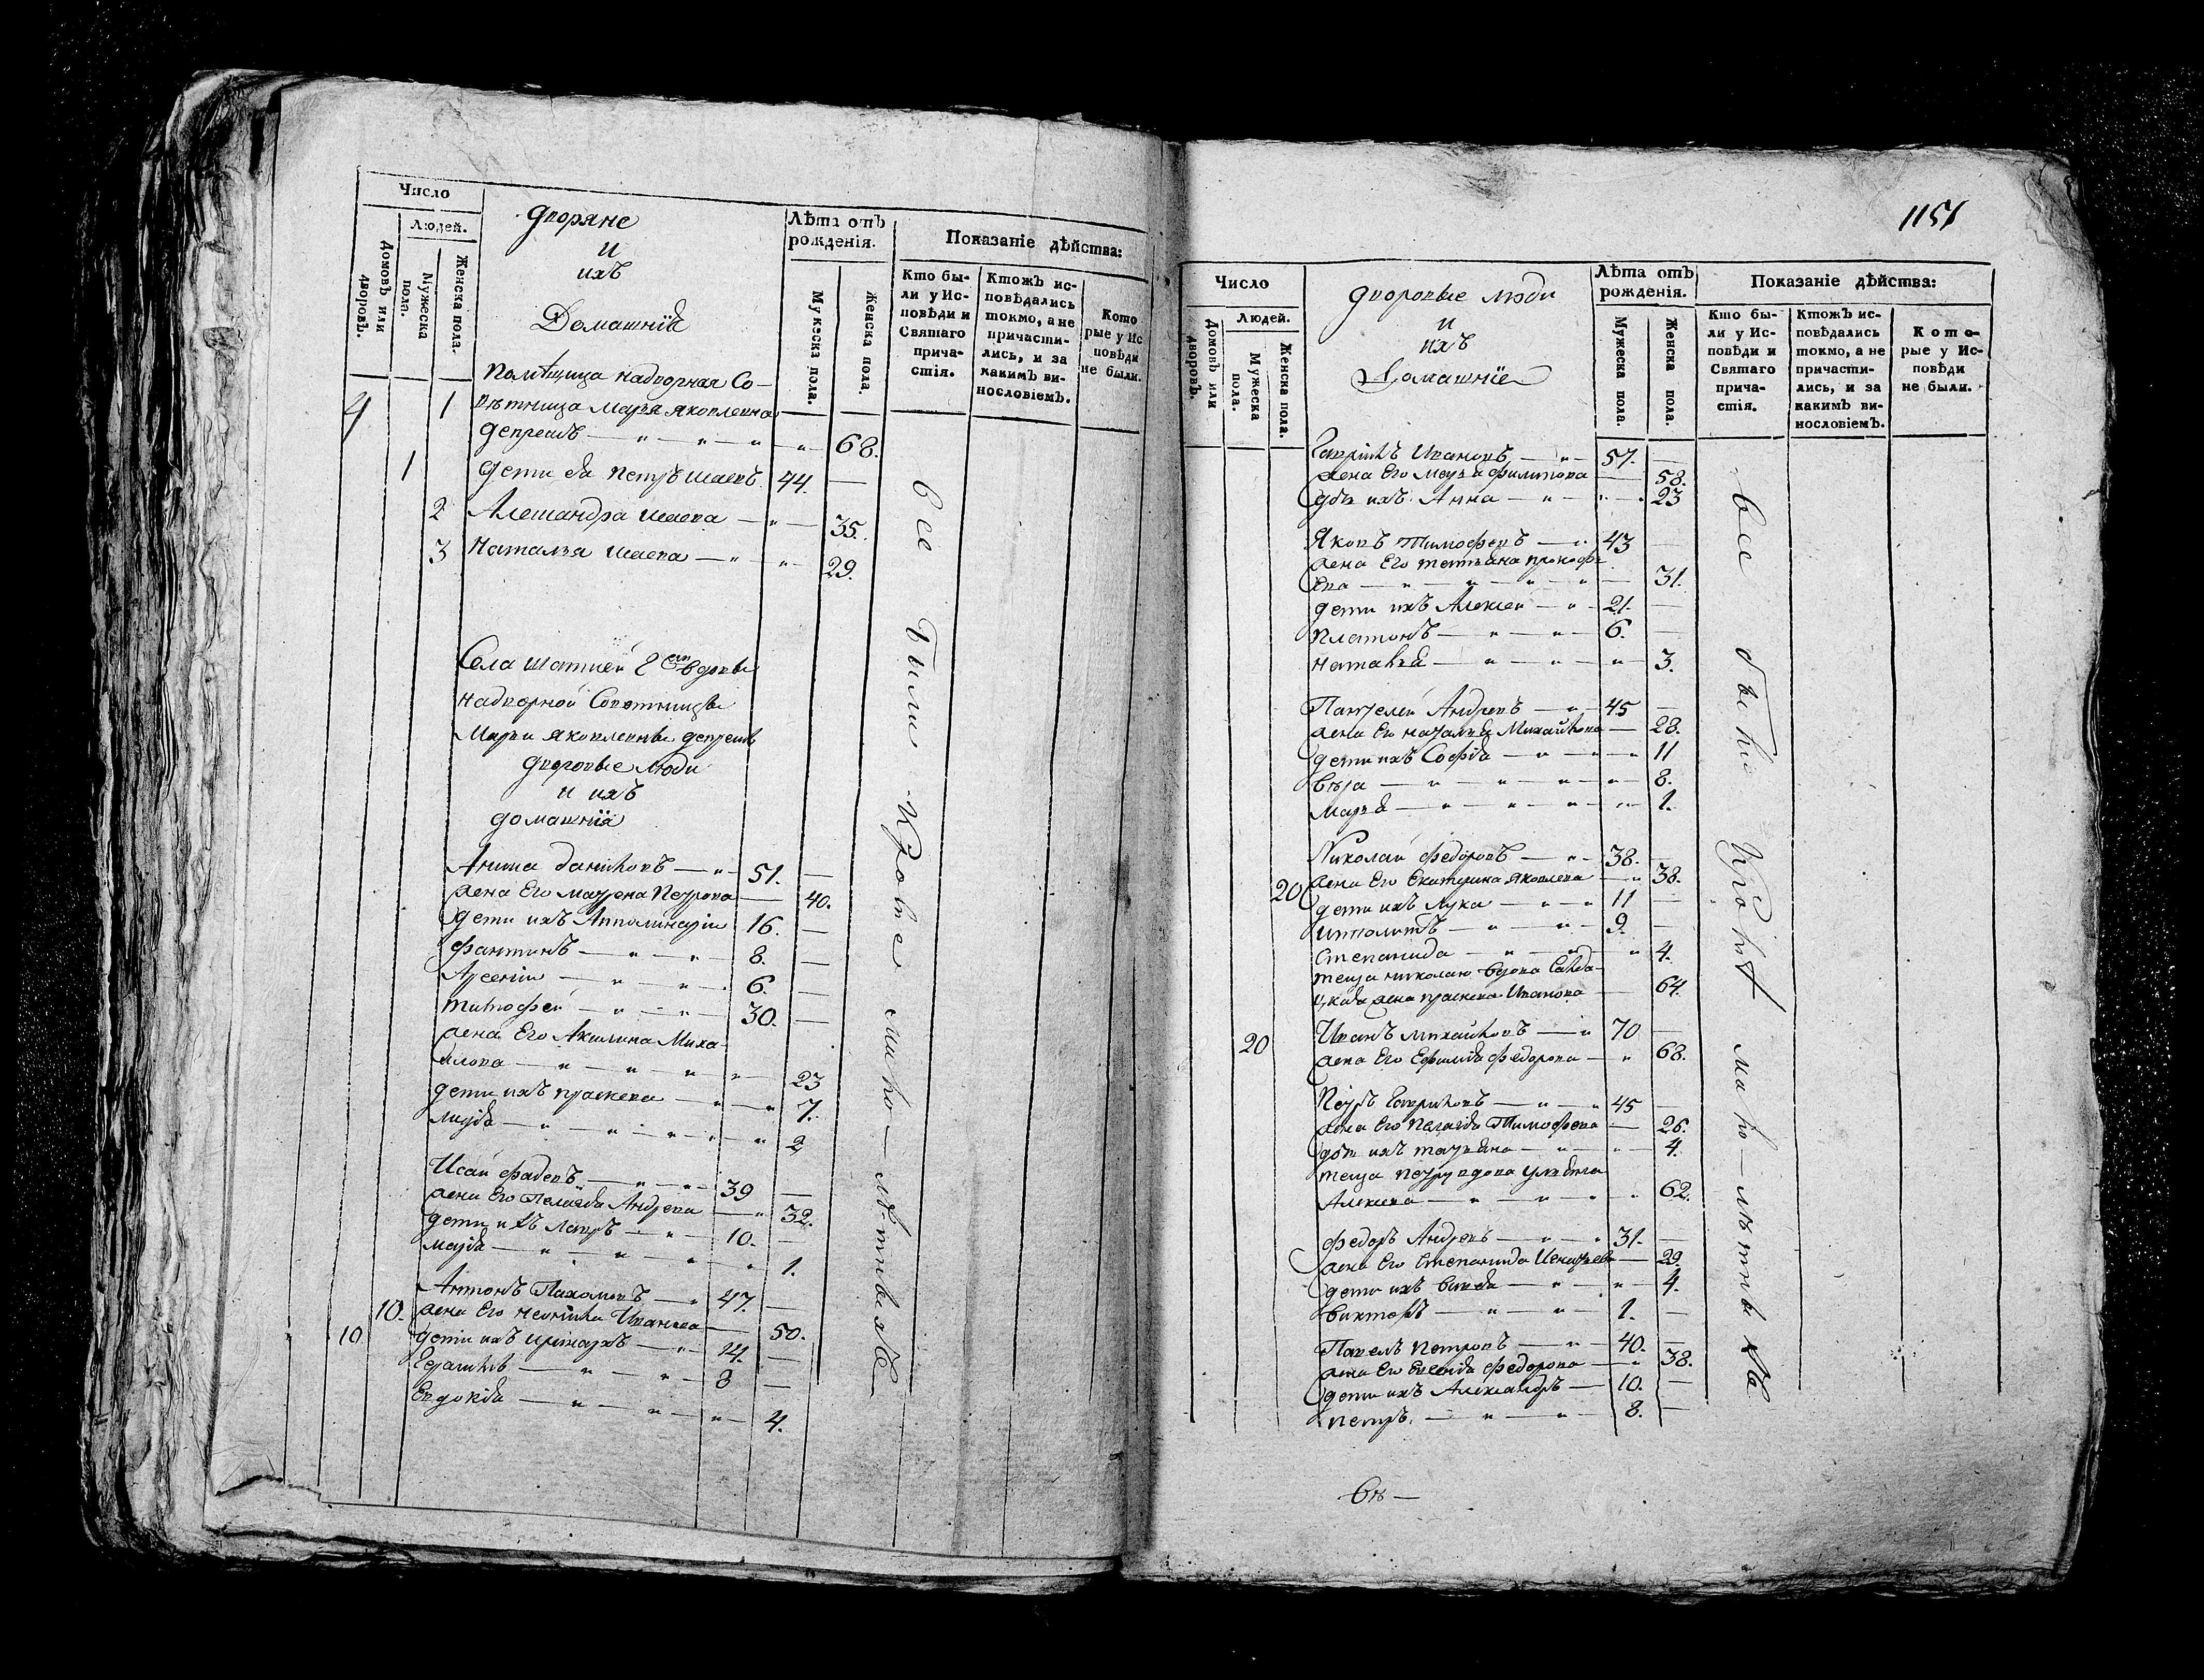 Число
Людей.
Домовъ или дворовъ.
Мужеска пола.
Женска пола.
дворяне
и
ихъ
Домашнія
Лѣта отъ рожденія.
Мужеска пола.
Женска пола.
Показаніе дѣйства:
Кто были у Исповѣди и Святаго причастія.
Ктожъ исповѣдались токмо, а не причастились, и за какимъ винословіемъ.
Которые у Исповѣди не были.
помѣщица надворная Со-
4 1 вѣтница Марья Яковлевна
68.
1 дети ея Петръ Исаевъ 44. —
2 Александра Исаева — " — 35.
3 Наталья Исаева — " — " — 29.
Села
вдовы
надворной Советницы
Марьи Яковлевны
дворовые люди
и ихъ
домашнія
Даниловъ — " — 51. —
жена Его Матрена Петрова — 40.
дети ихъ Апполинарій 16. —
Фантинъ — " — " — 8. —
Арсеній — " — " 6. —
Тимофей — " — " — 30. —
жена Его Акилина Миха-
илова — " — " — " — " — 23
дети ихъ праскева — " — " 7.
Марья — " — " — " — " 2
Исай Фадеевъ — " — " — 39 —
жена Его Пелагея Андреева — " 32.
дети ихъ Лавръ — " — 10. —
Марья — " — " — " 1.
Антонъ Пахомовъ — " 47. —
10. жена Его Неонила Иванова — 50.
10 дети ихъ
8 —
Евдокія — " — " — " — 4.
все были кроме малолѣтныхъ
1151
Число
Людей.
Домовъ или дворовъ.
Мужеска пола.
Женска пола.
дворовые люди
и
ихъ
Домашніе
Лѣта отъ рожденія.
Мужеска пола.
Женска пола.
Показаніе дѣйства:
Кто были у Исповѣди и Святаго причастія.
Ктожъ исповѣдались токмо, а не причастились, и за какимъ винословіемъ.
Которые у Исповѣди не были.
Гаврилъ Ивановъ — " — 57. —
жена Его Марья Филипова — 58.
дочь ихъ Анна — " — " — 23
Яковъ Тимофеевъ — " 43 —
жена Его Татьяна прокофь-
ева — " — " — " — " — 31.
дети ихъ Алексей — " — 21. —
Платонъ — " — " — 6. —
Наталья — " — " — " — 3.
Пантелей Андреевъ — " — 45 —
жена Его Наталья Михайлова — 28.
дети ихъ Софья — " — " — " 11
Вера — " — " — " — " — 8.
Марья — " — " — " — " — 1.
Николай Федоровъ — " — 38. —
20 жена Его Екатерина Яковлева — " 38.
дети ихъ Лука — " — " 11 —
Ипполитъ — " — " — 9. —
Степанида — " — " — " 4.
теща николаю вдова Солда-
цкая жена праскева Иванова — 64.
20 Иванъ Михайловъ — " 70 —
жена Его Ефимья Федорова — " 68.
Петръ Гавриловъ — " — " 45 —
жена Его Пелагея Тимофеева — 26.
дочь ихъ Татьяна — " — " — 4.
теща Петру вдова Ульяна
Алексеева — " — " — " 62.
Федоръ Андреевъ — " — " 31. —
жена Его Степанида — 29.
дети ихъ — " — " — 4.
Викторъ — " — " — 1. —
Павелъ Петровъ — " — 40. —
жена Его Федорова — " 38.
дети ихъ Александръ — 10. —
Петръ. — " — " — 8. —
все были кроме малолѣтныхъ